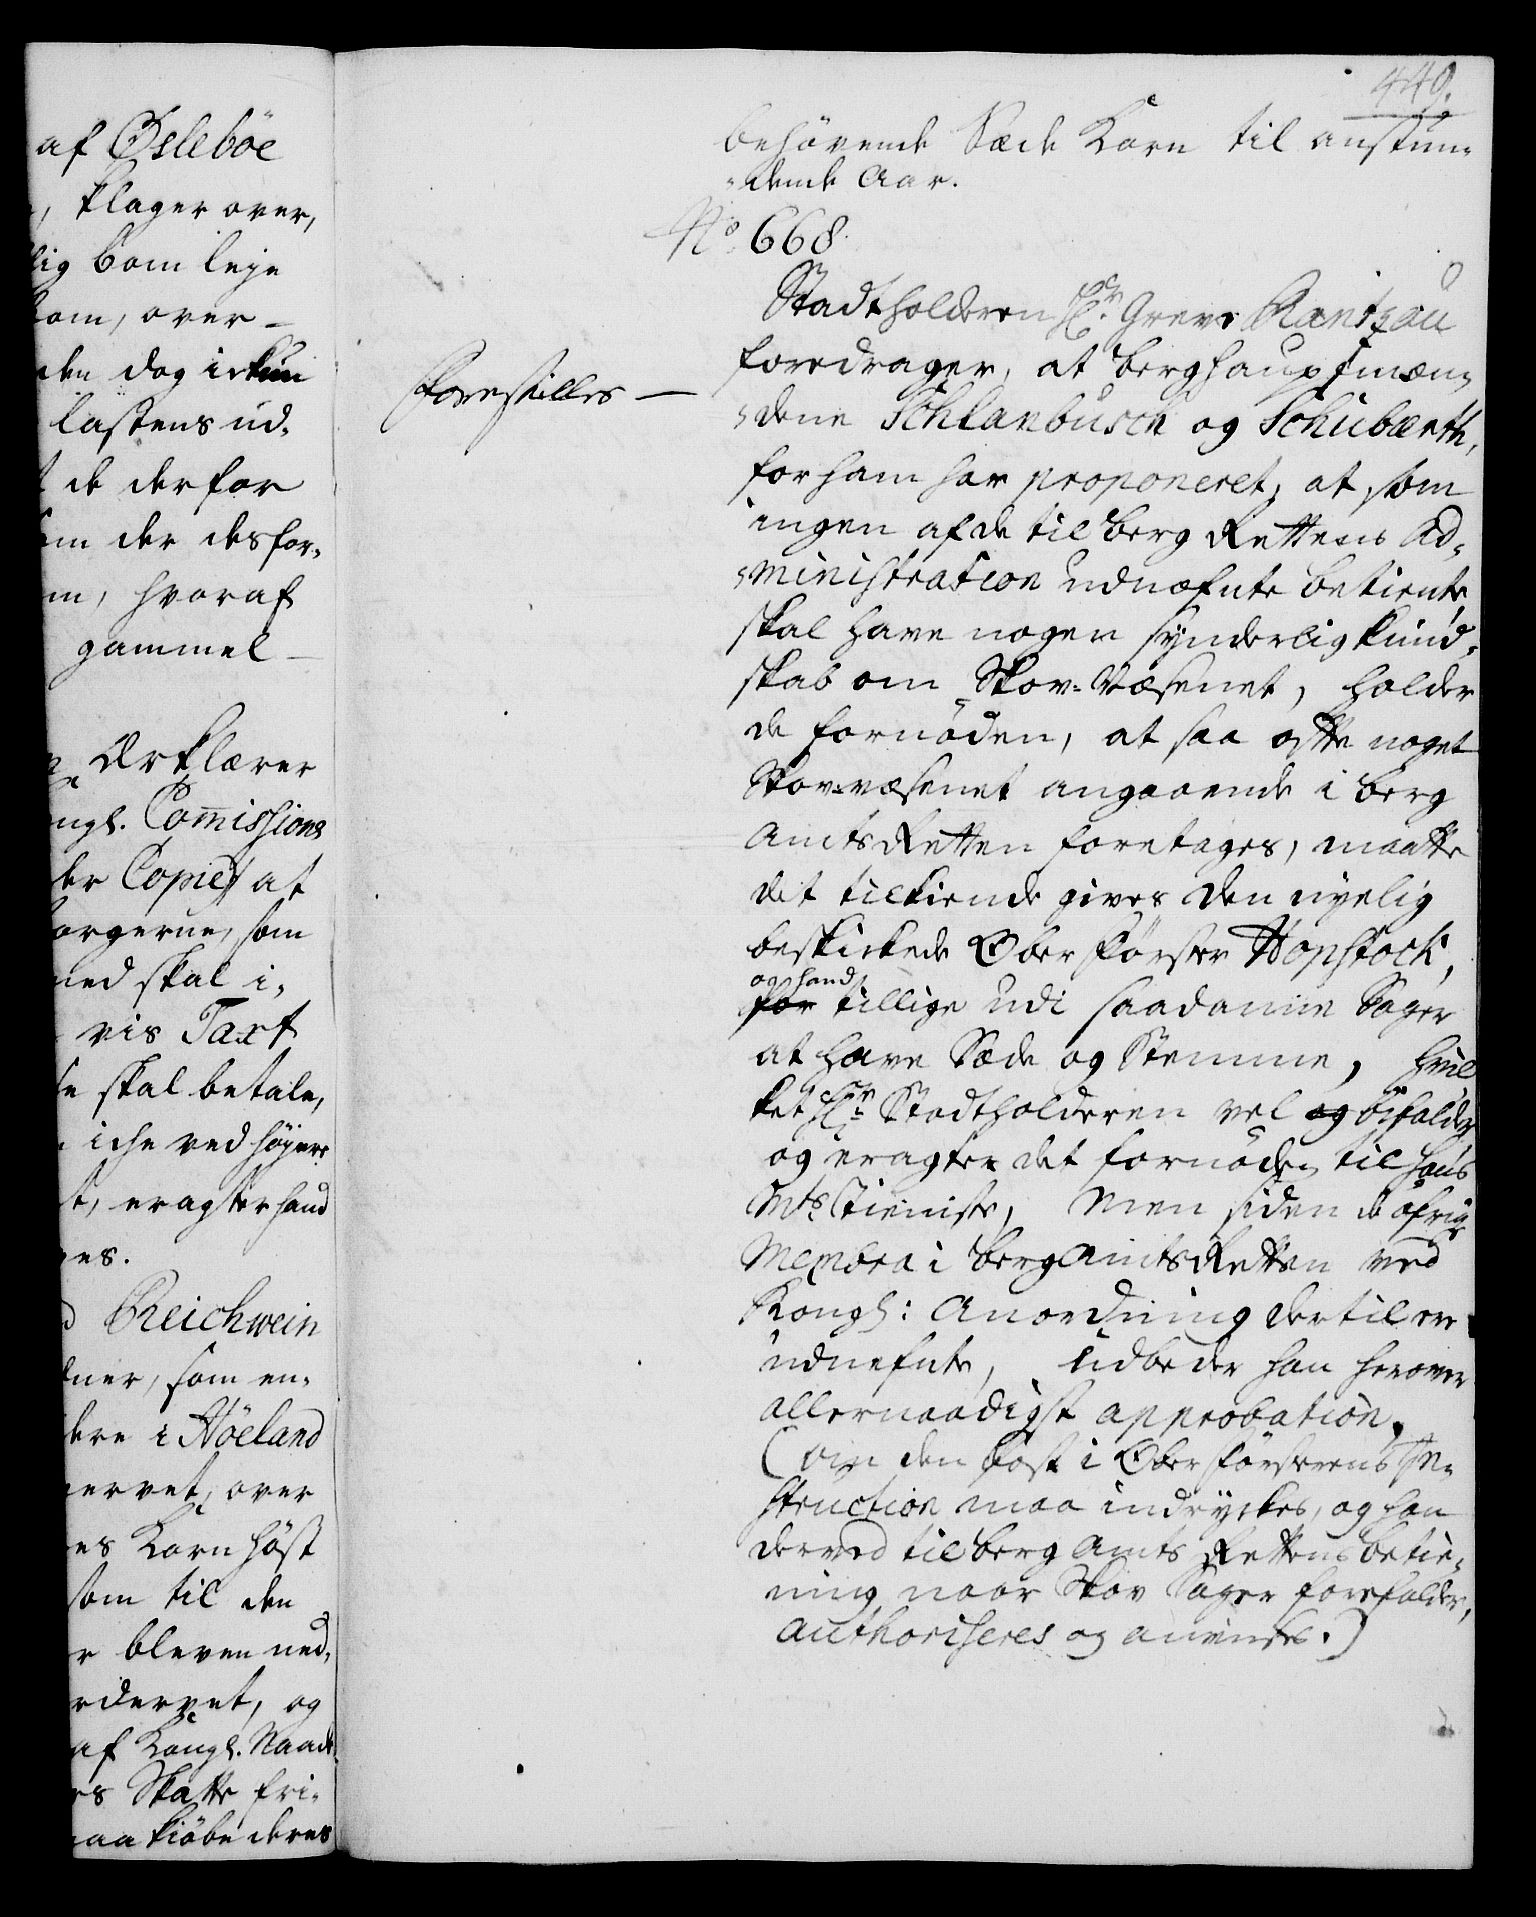 af Osleböe
klager over,
lig bom leje
om, over-
den dog i
lastens ud-
de derfor
der desfor-
hvoraf
gammel
Erklærer
ngl. Com̅issions
der Copie/ at
borgerne, som
ned skal i-
vis Taxt
skal betale,
iche ved høyere
eragter hand
es.
Reichwein
ner, som en-
dere i Höeland
ervet, over
es Korn höst
som til den
r bleven ned-
rdervet, og
af Kongl. Naade
es Skatte fri-
aa kiöbe deres
449.
behövende Sæde Korn til anstun-
-dende Aar.
No 668.
Stadtholderen Hr. Greve Rantzau
Forestilles —
foredrager, at berghauptmæn-
-dene Schlanbusch og Schubærth,
for ham har proponeret, at som
ingen af de til berg Rettens Ad-
-ministration udnæfnte betiente
skal have nogen synderlig kund-
skab om Skov-Væsenet, holder
de fornöden, at saa ofte noget
Skov-væsenet angaaende i berg
Amts Retten foretages, maatte
det tilkiende gives den nyelig
beskickede Ober Förster Hopstock,
og hand
for tillige udi saadanne Sager
at have Sæde og Stemme, hvil
ket Hr. Stadtholderen vel og befalder
og eragter det fornöden til Hans
Mts. Tieniste, Men siden de öfrige
Membra i berg Amts Retten ved
Kongl: Anordning dertil ere
udnefnte, udbeder han herover
allernaadigst approbation,
(om den post i Ober Försterens In-
struction maa indryckes, og han
derved til berg Amts Rettens betie-
ning, naar Skov Sager forefalder,
authoriseres og anvises.)